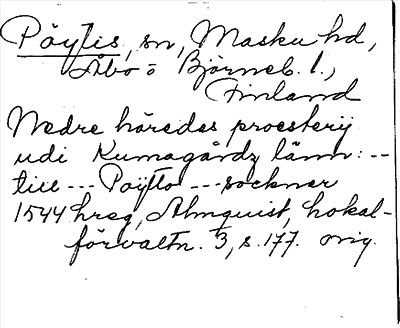 Pöytis, sn, Masku hd,
Åbo o Björneb. l.,
Finland
Nedre häredes proesterij
udi Kumagårdz länn: --
till --- Pöytto --- sockner
1544 hreg, Almquist, Lokal-
förvaltn. 3, s. 177. orig.